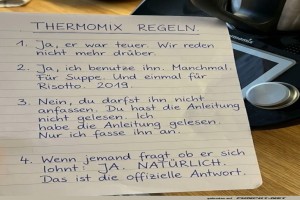 THERMOMIX REGELN.
1. Ja, er war teuer. Wir reden
nicht mehr drüber.
2. Ja, ich benutze ihn. Manchmal.
Für Suppe. Und einmal für
Risotto. 2019
3. Nein, du darfst ihn nicht
anfassen. Du hast die Anleitung
nicht gelesen. Ich
habe die Anleitung gelesen.
Nur ich fasse ihn an.
4. Wenn jemand fragt ob er sich
lohnt: JA. NATÜRLICH.
Das ist die offizielle Antwort.